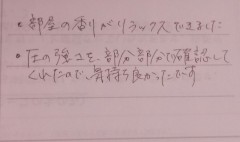 • 部屋の香りがリラックスできました
• 圧の強さを、部分部分で確認して
くれたので、気持ち良かったです